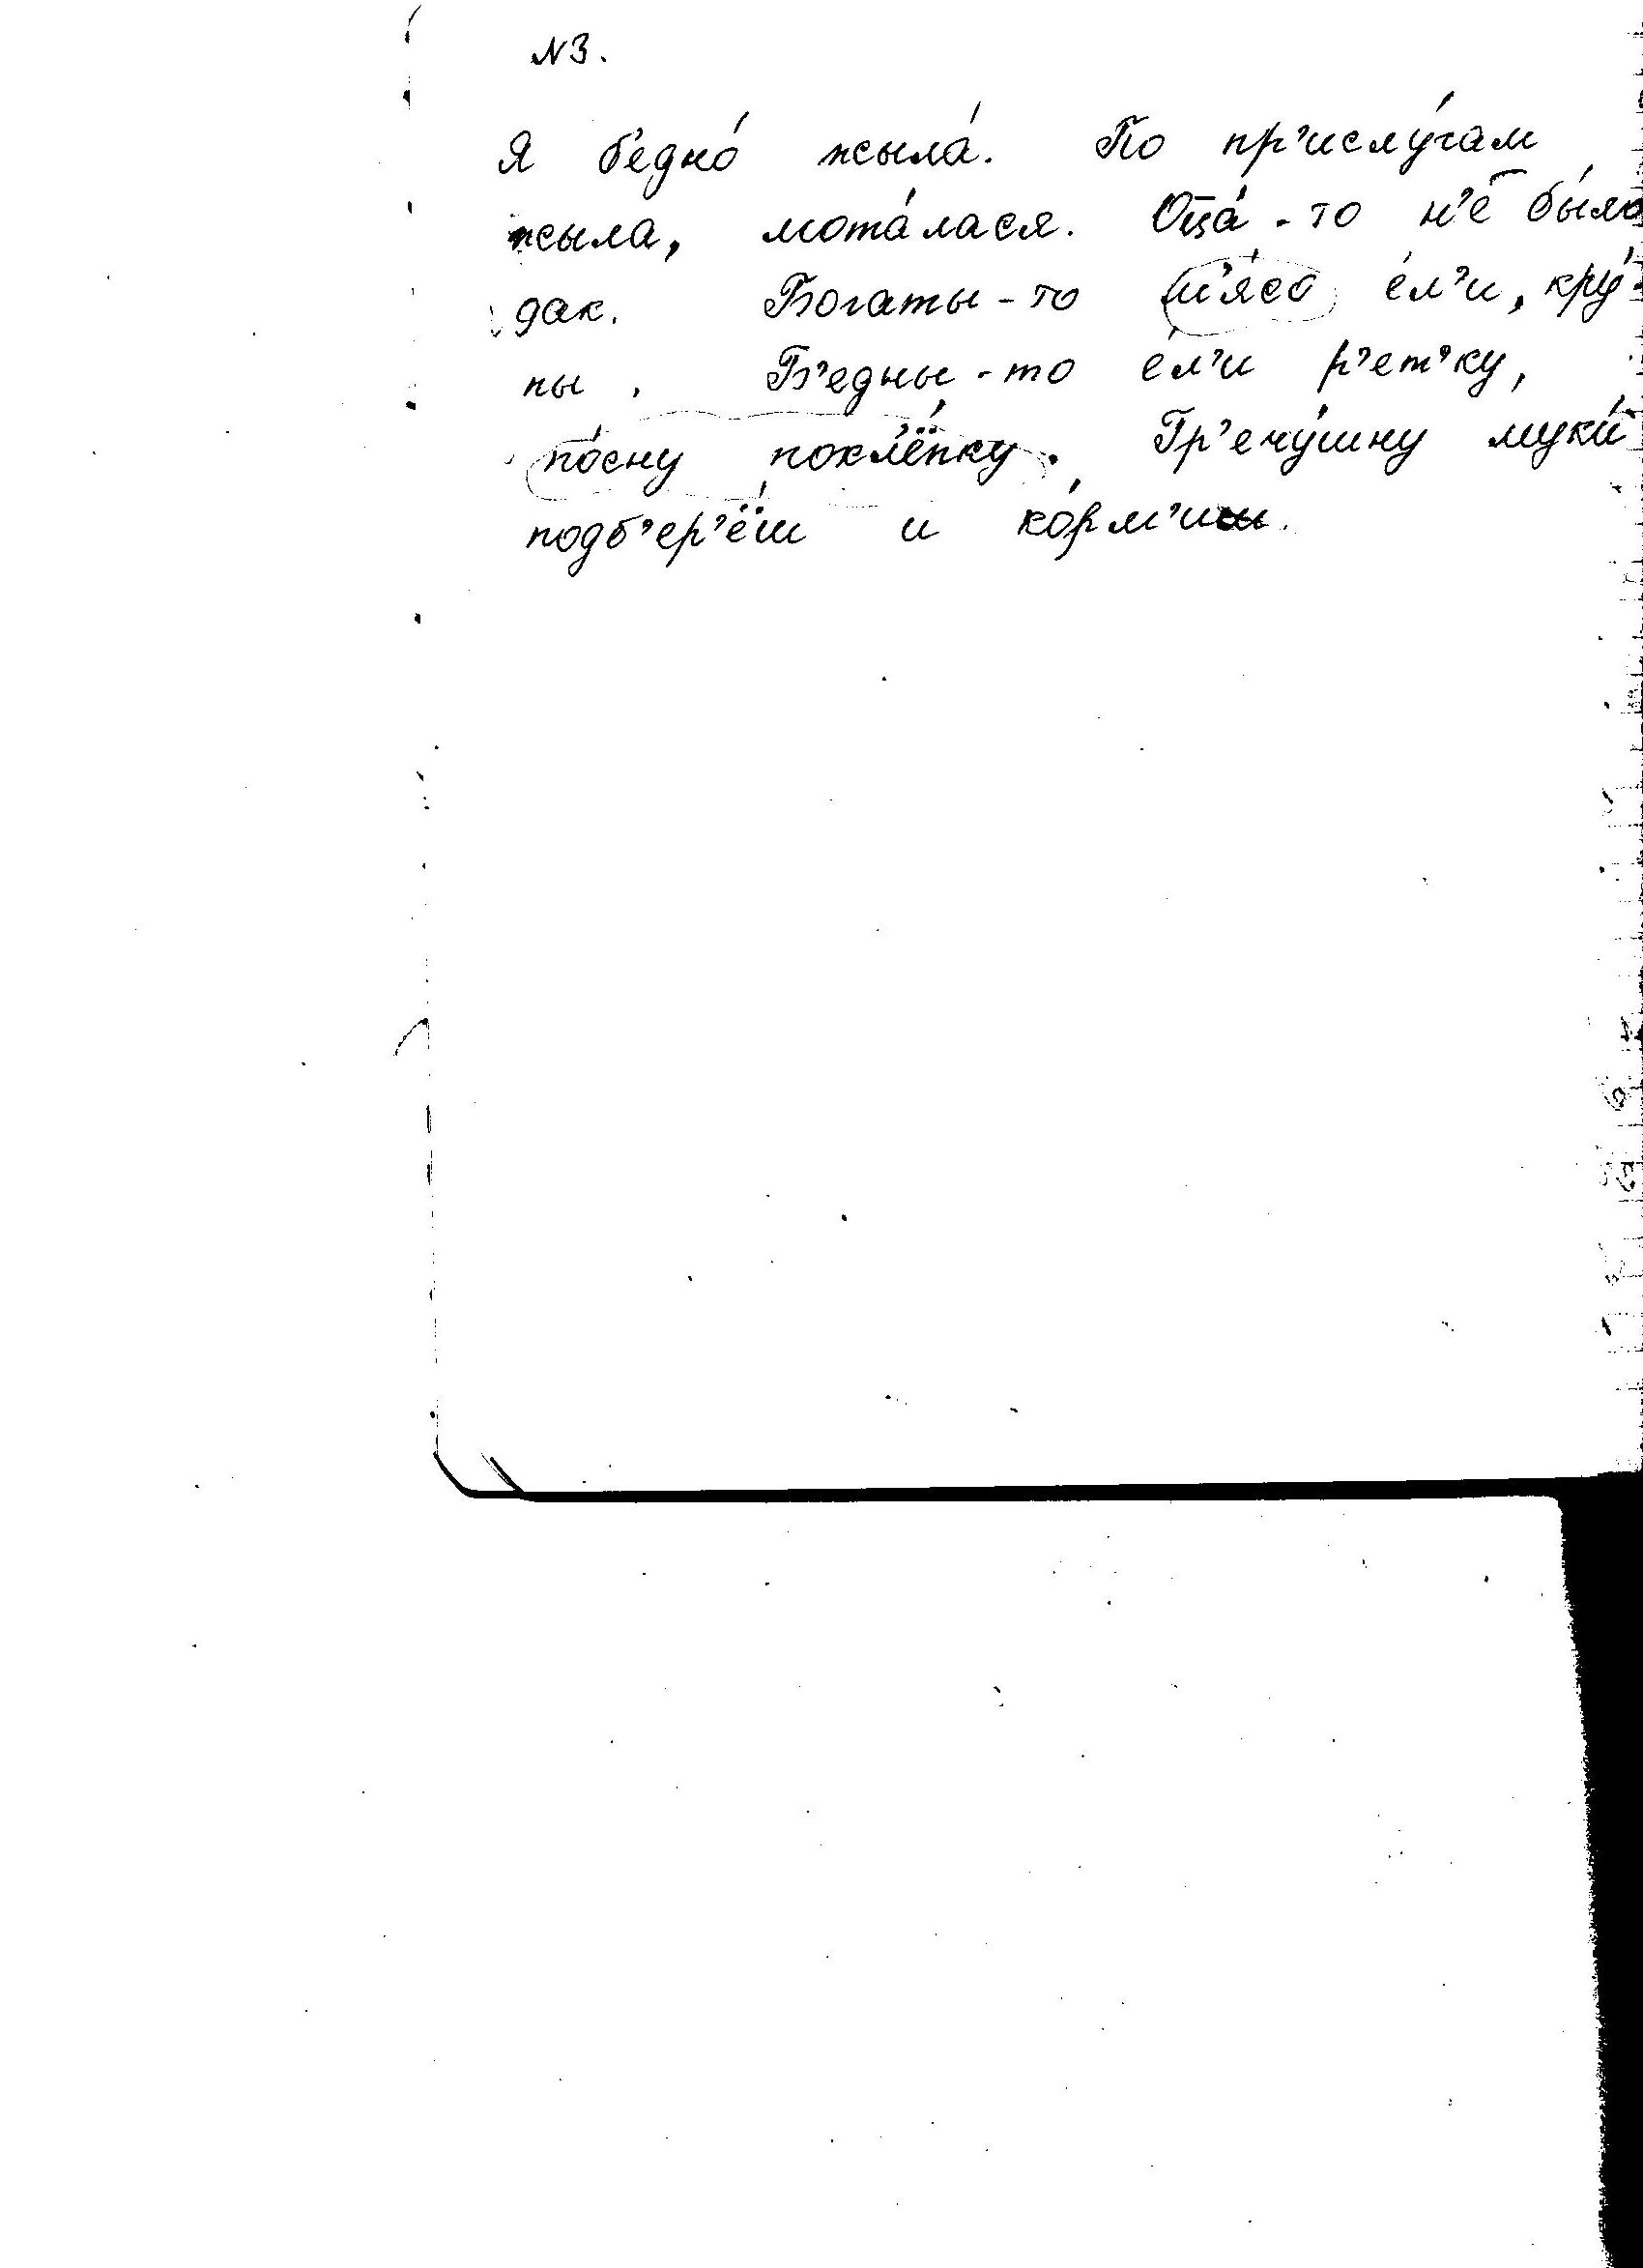 N3.
Я б'едно́ жыла́. По пр'ислу́гам
жыла, мота́лася. Оца́-то н'е́ было
дак. Богаты-то м'я́со е́л'и, кру́-
пы. Б'едны-то е́л'и р'е́т'ку,
по́сну похл'ёпку. Гр'ечу́шну муки́
подб'ер'ёш и ко́рм'иш.